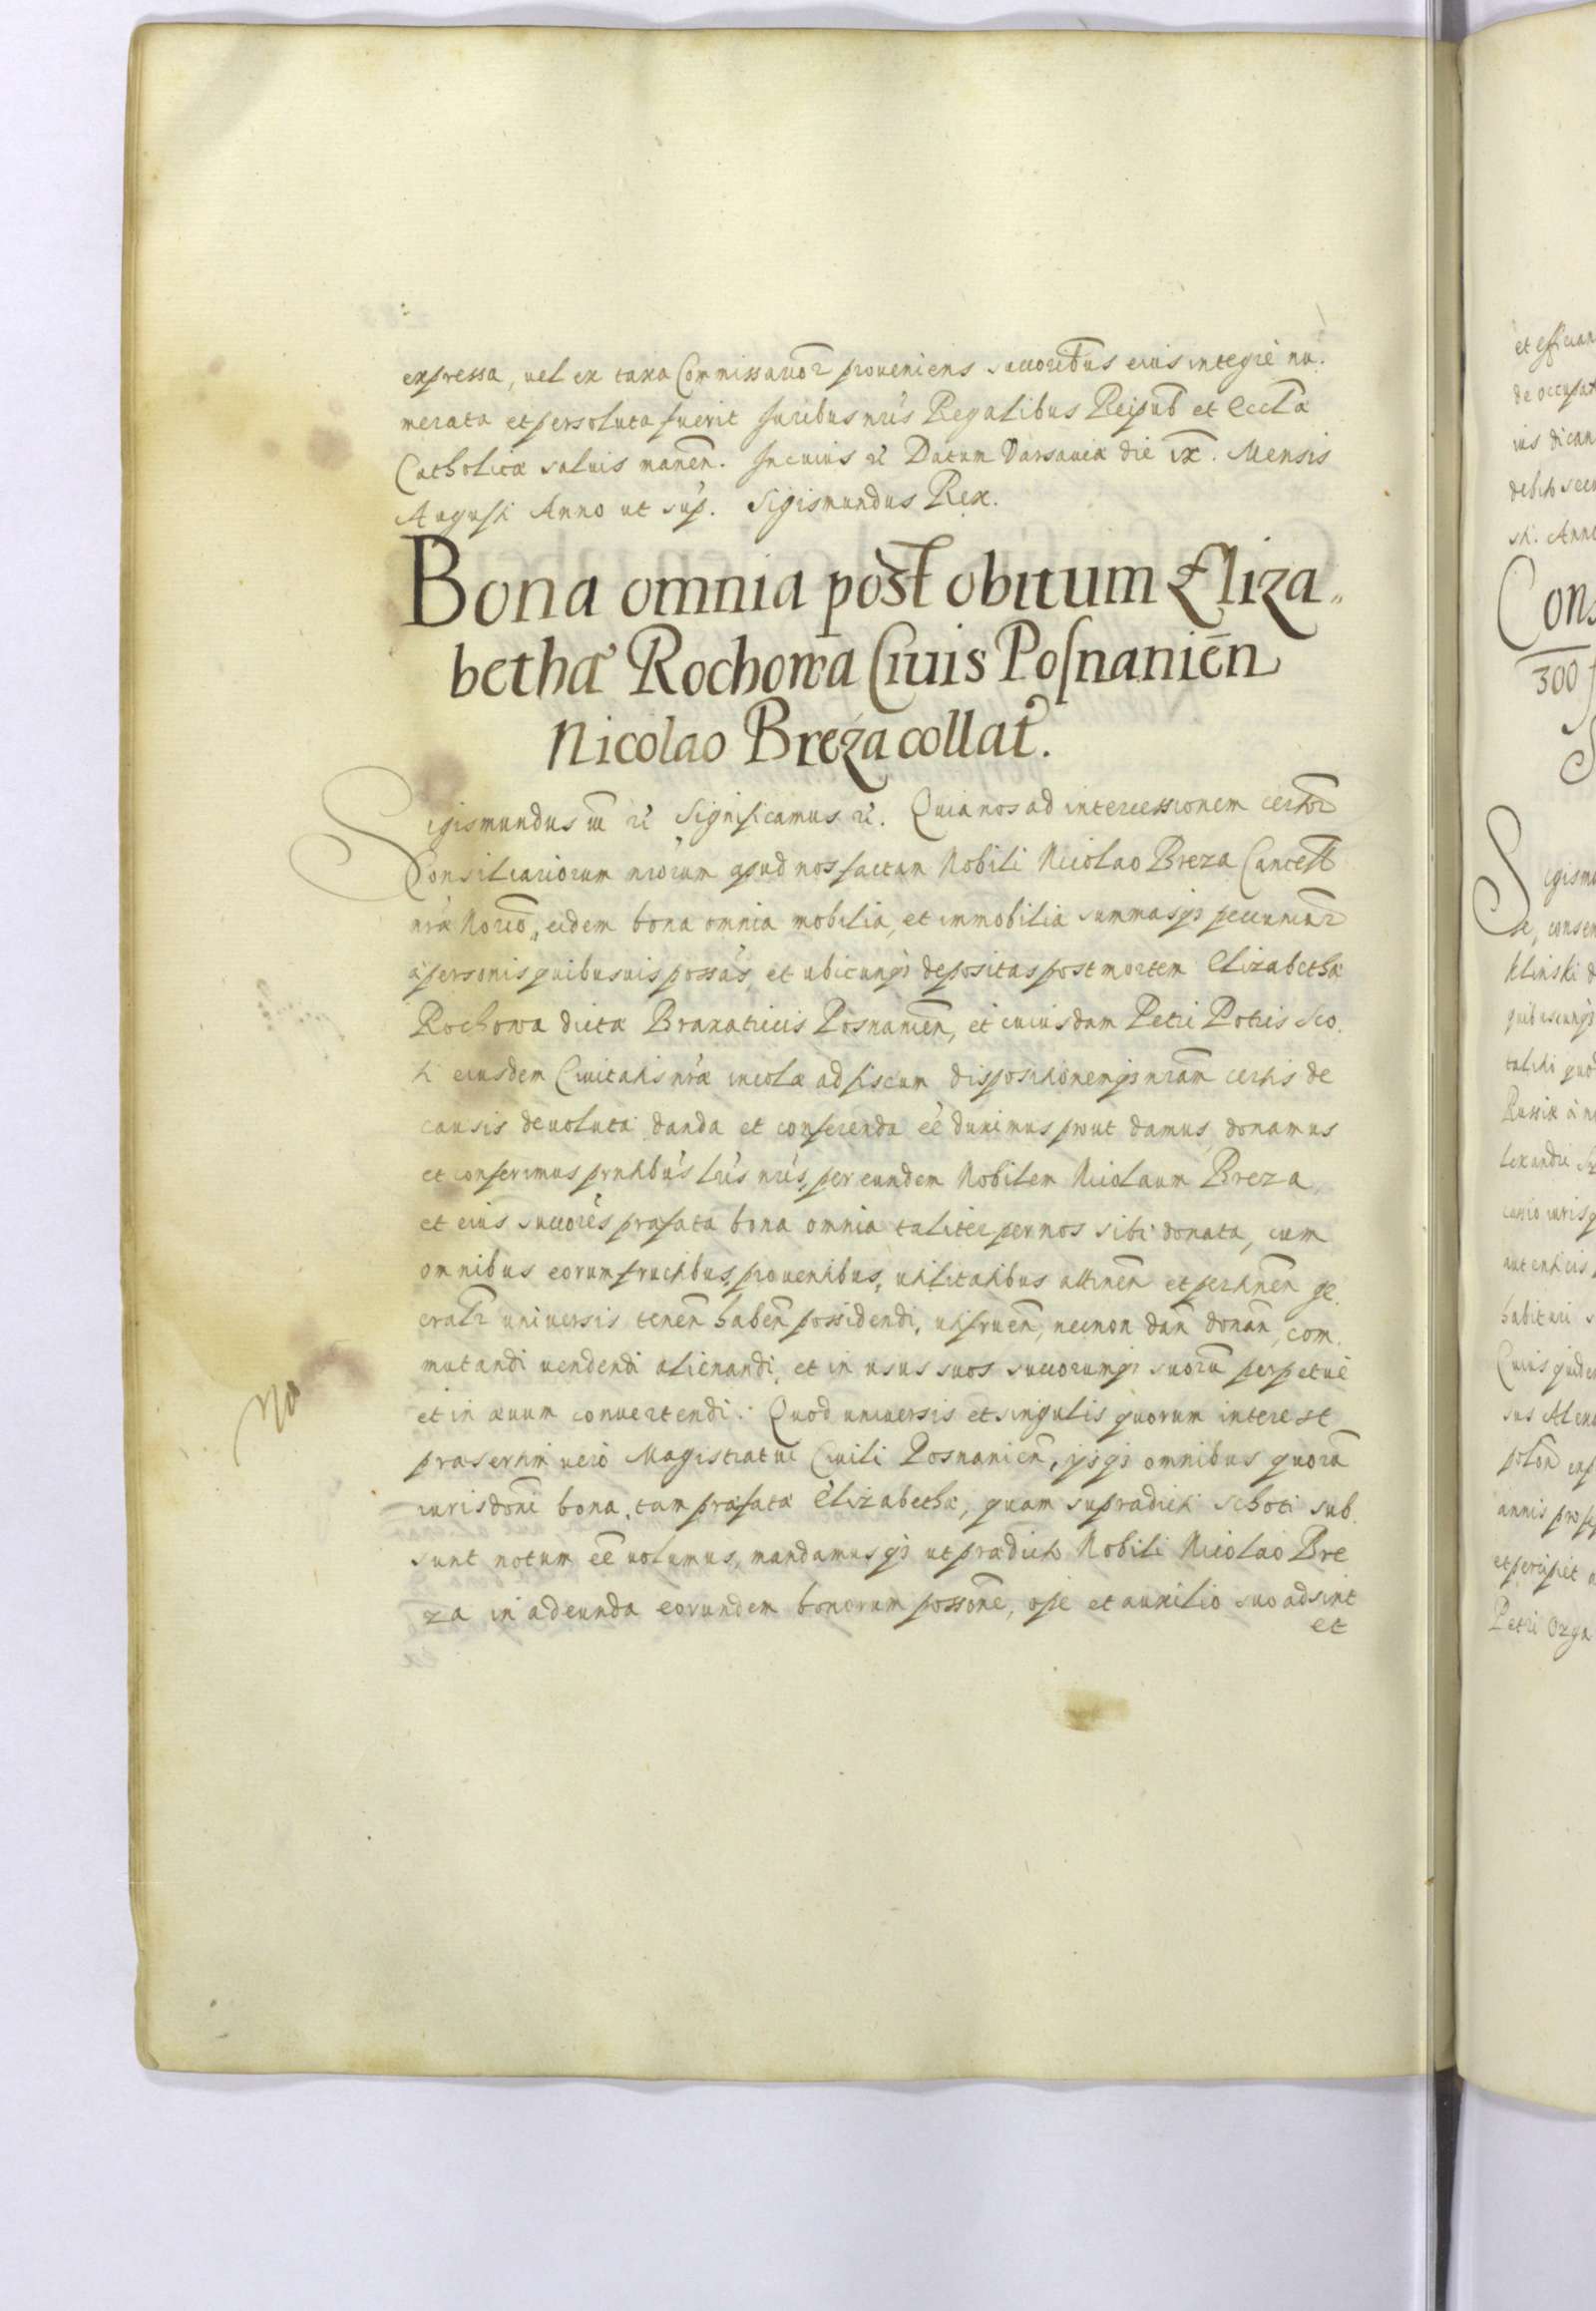 expressa, uel ex taxa Commissarior proueniens succoribus eius integrè nu.
merata et persoluta fuerit Juribus nris Regalibus Reipub et Eccla
Catholicæ saluis manen. In cuius rei Datum Varsauiæ die ix. Mensis
Augusti Anno ut sup. Sigismundus Rex.
Bona omnia post obitum Eliza„
bethæ Rochowa Ciuis Posnanien
Nicolao Breza collat.
Sigismundus iii rc Significamus rc. Quia nos ad intercessionem certor
Consiliariorum nrorum apud nos factam Nobili Nicolao Breza Cancell
nræ Norio, eidem bona omnia mobilia, et immobilia summasqз pecuniar
à personis quibusuis possas, et ubicunqз depositas post mortem Elizabethæ
Rochowa dictæ Braxatricis Posnanien, et cuiusdam Petri Potris Sco.
ti eiusdem Ciuitatis nræ incolæ ad fiscum dispositionemqз nram certis de
causis deuoluta danda et conferenda eē duximus prout damus donamus
et conferimus pntibus lris nris, per eundem Nobilem Nicolaum Breza
et eius succores præfata bona omnia taliter per nos sibi donata, cum
omnibus eorum fructibus, prouentibus, utilitatibus attinen et pertinen ge.
eralr uniuersis tenen haben possidendi, utifruen, necnon dan donan, com.
mutandi uendendi alienandi, et in usus suos succorumqз suoru perpetuè
et in æuum conuertendi. Quod uniuersis et singulis quorum interest
præsertim uerò Magistratui Ciuili Posnanien, ijsqз omnibus quoru
iurisdoni bona, tam præfatæ Elizabethæ, quam supradicti Schoti sub.
sunt notum eē uolumus, mandamusqз ut prædicto Nobili Nicolao Bre
za in adeunda eorundem bonorum possone, ope et auxilio suo adsint
et